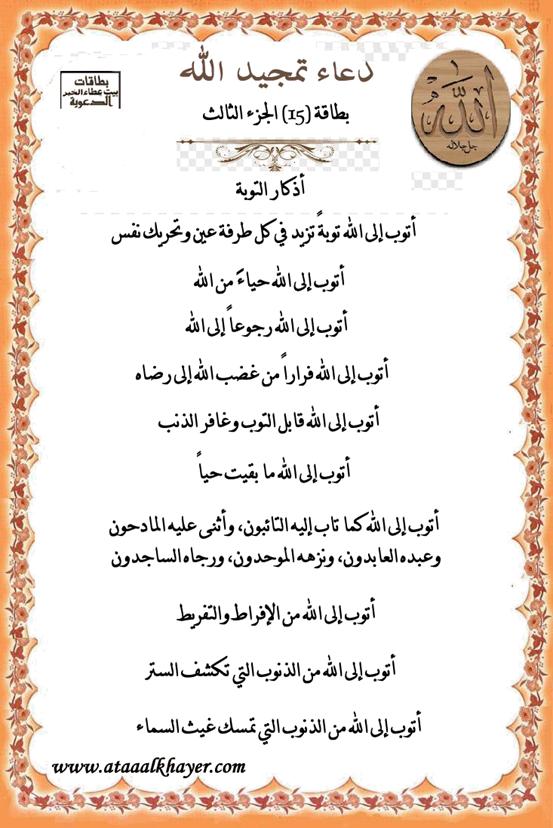 دعاء تمجيد الله
بطاقات
بيت عطاء الخير
الدعوية
الله
جل جلاله
بطاقة (15) الجزء الثالث
أذكار التوبة
أتوب إلى الله توبةً تزيد في كل طرفة عين وتحريك نفس
أتوب إلى الله حياءً من الله
أتوب إلى الله رجوعاً إلى الله
أتوب إلى الله فراراً من غضب الله إلى رضاه
أتوب إلى الله قابل التوب وغافر الذنب
أتوب إلى الله ما بقيت حياً
أتوب إلى الله كما تاب إليه التائبون، وأثنى عليه المادحون
وعبده العابدون، ونزهه الموحدون، ورجاه الساجدون
أتوب إلى الله من الإفراط والتفريط
أتوب إلى الله من الذنوب التي تكشف الستر
أتوب إلى الله من الذنوب التي تمسك غيث السماء
www.ataaalkhayer.com